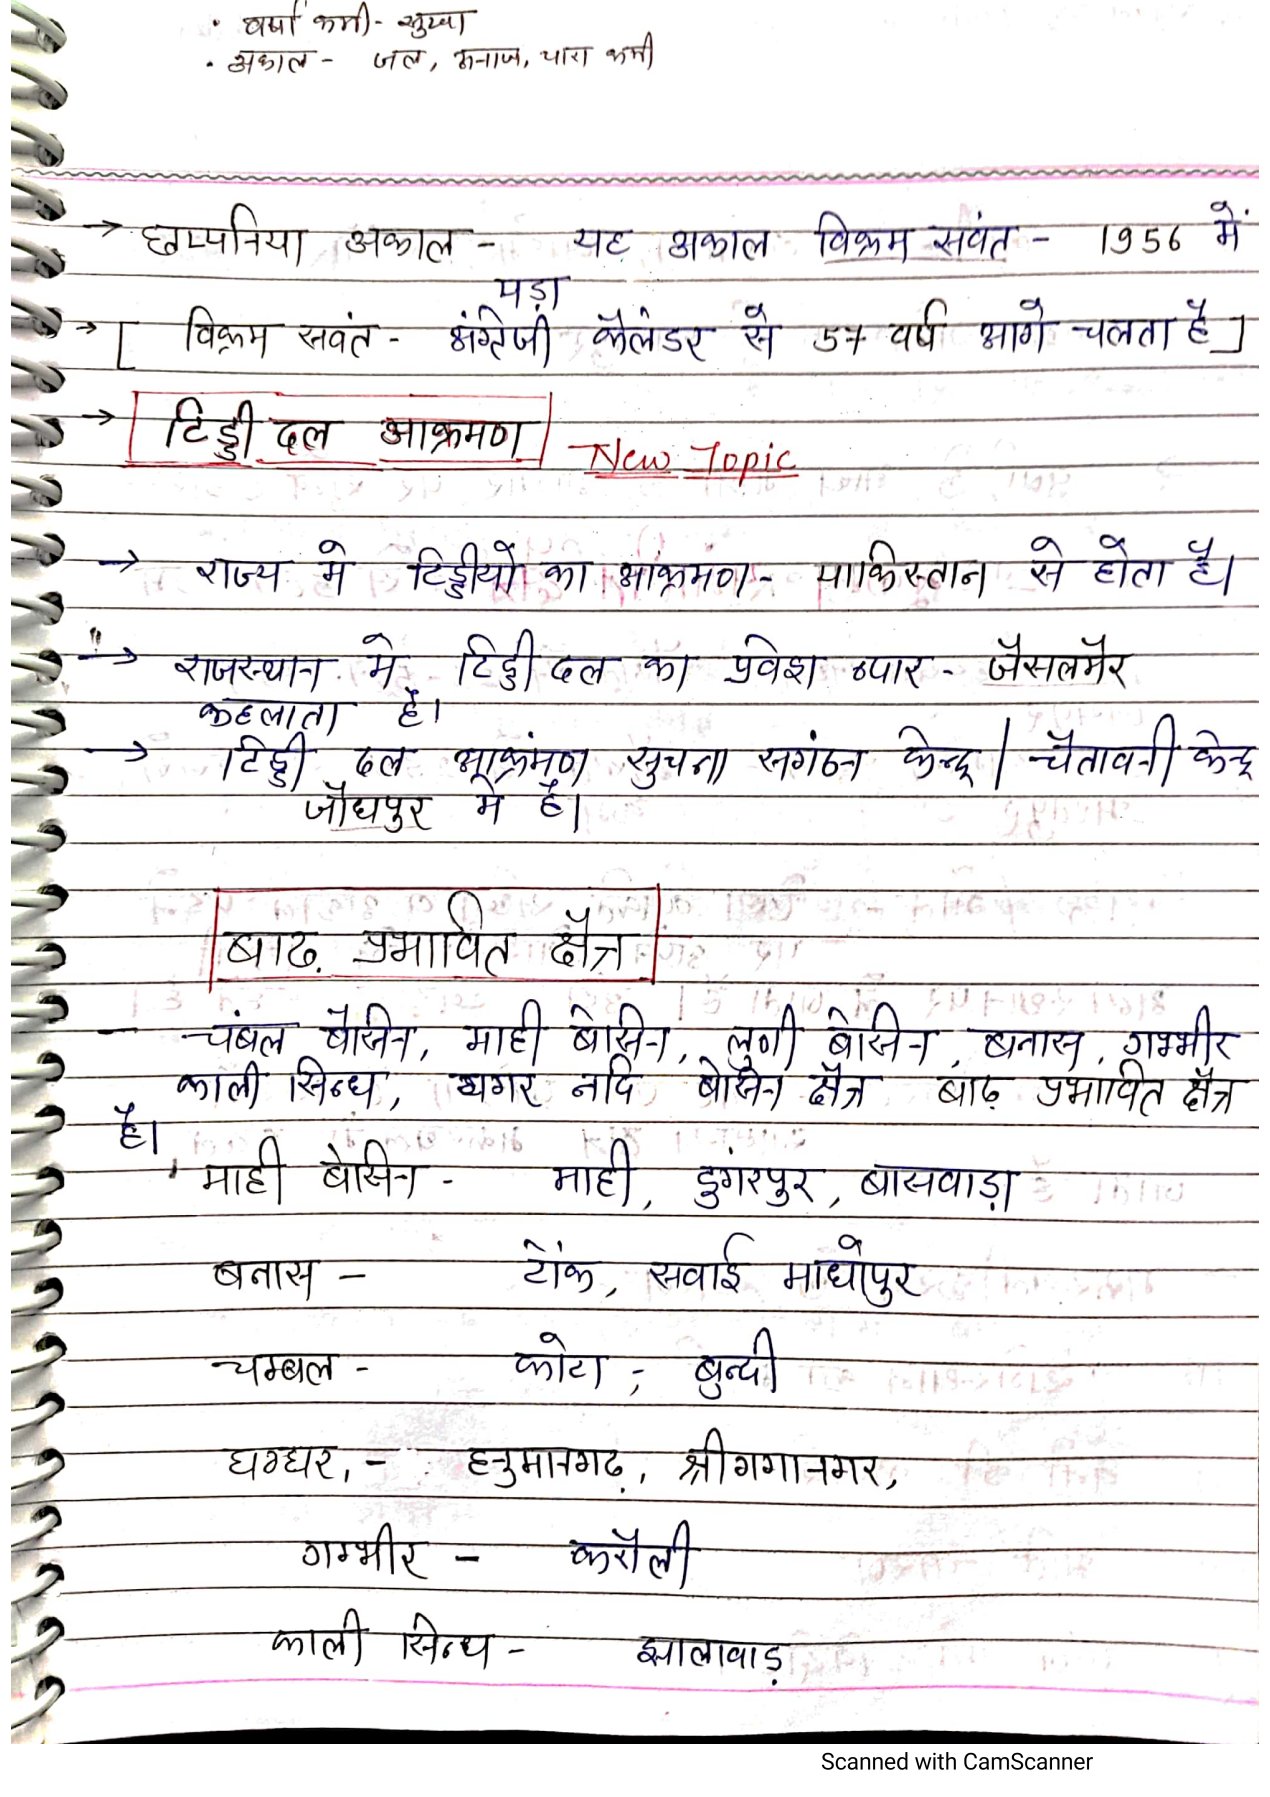 · वर्षा कमी - सुखा
· अकाल - जल, अनाज, चारा कमी
→ छप्पनिया अकाल - यह अकाल विक्रम सवंत - 1956 में
पड़ा
→ [ विक्रम सवंत - अंग्रेजी कैलेंडर से 57 वर्ष आगे चलता है ]
→ टिड्डी दल आक्रमण New Topic
→ राज्य मे टिड्डीयों का आंक्रमंण - पाकिस्तान से होता है।
→ राजस्थान मे टिड्डी दल का प्रवेश ध्दार - जैसलमैर
कहलाता है।
→ टिड्डी दल आक्रंमण सुचना सगंठन केन्द्र / चैतावनी केन्द्र
जौधपुर में है।
बाढ़ प्रभावित क्षैत्र
- चंबल बैसिन, माही बेसिन, लुणी बेसिन, बनास, गम्भीर
काली सिन्ध, घगर नदि बेसिन क्षैत्र बांढ़ प्रभावित क्षैत्र
है।
माही बेसिन - माही, डुगंरपुर, बासवाड़ा
बनास - टोंक, सवाई माधोपुर
चम्बल - कोटा, बुन्दी
घग्घर, - हनुमानगढ़, श्रीगगानगर,
गम्भीर - करौली
काली सिन्ध - झालावाड़
Scanned with CamScanner